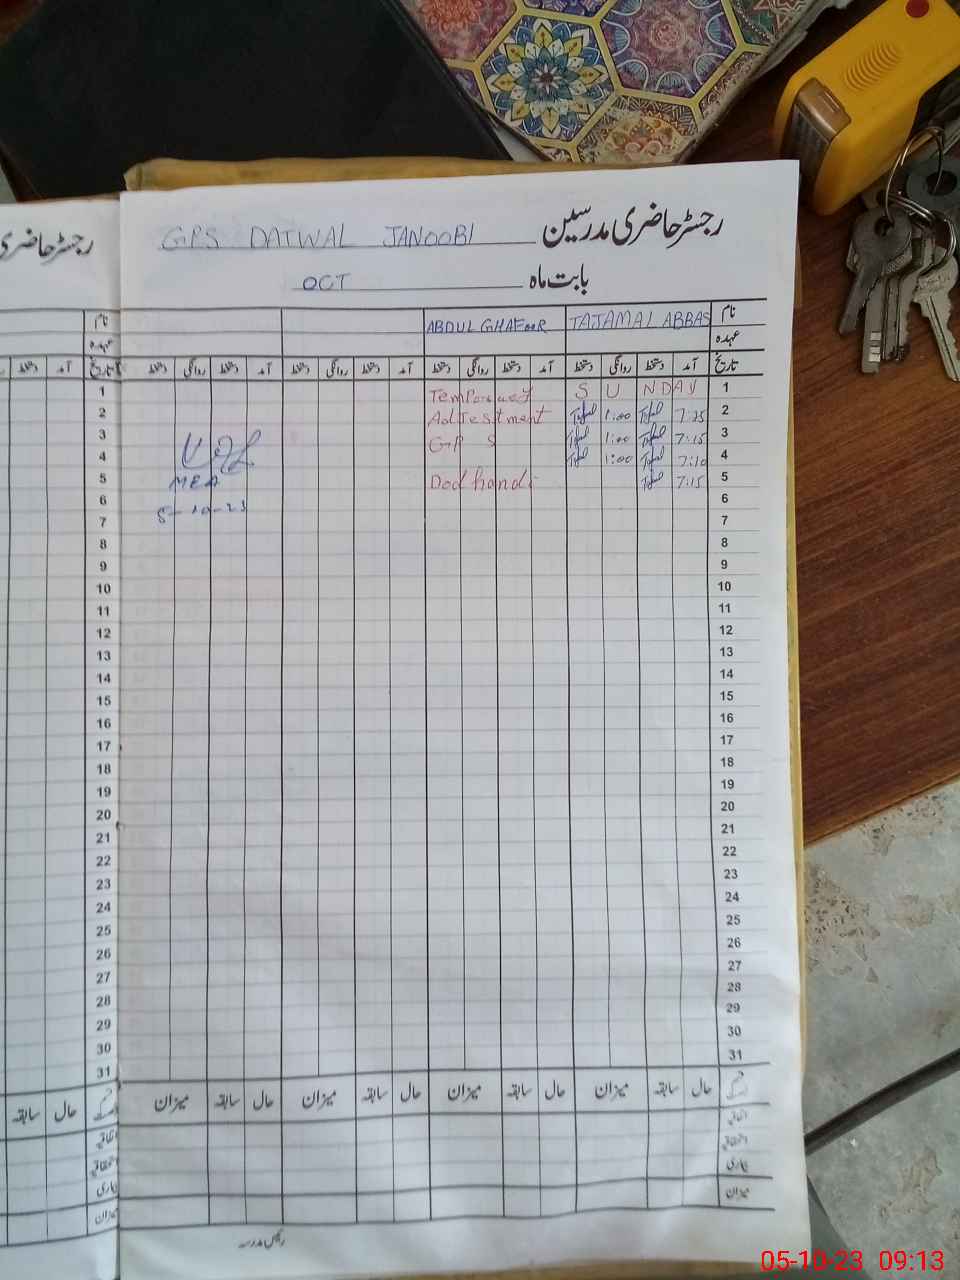 رجسٹر حاضری مدرسین GPS DATWAL JANOOBI
بابت ماہ OCT
نام TAJAMAL ABBAS ABDUL GHAFOOR
عہدہ
تاریخ آمد دستخط روانگی دستخط آمد دستخط روانگی دستخط آمد دستخط روانگی دستخط آمد دستخط روانگی دستخط
1 SUNDAY Temporary
2 7:25 1:00 Adjestment
3 7:15 1:00 GPS
4 7:10 1:00
5 7:15 Dodhandi MEA
6 5-10-23
7
8
9
10
11
12
13
14
15
16
17
18
19
20
21
22
23
24
25
26
27
28
29
30
31
حال سابقہ میزان حال سابقہ میزان حال سابقہ میزان حال سابقہ میزان
اتفاقیہ
استحقاقیہ
بیماری
میزان
رئیس مدرسہ
رجسٹر حاضری
نام
عہدہ
تاریخ آمد دستخط
1
2
3
4
5
6
7
8
9
10
11
12
13
14
15
16
17
18
19
20
21
22
23
24
25
26
27
28
29
30
31
حال سابقہ
اتفاقیہ
استحقاقیہ
بیماری
میزان
05-10-23 09:13